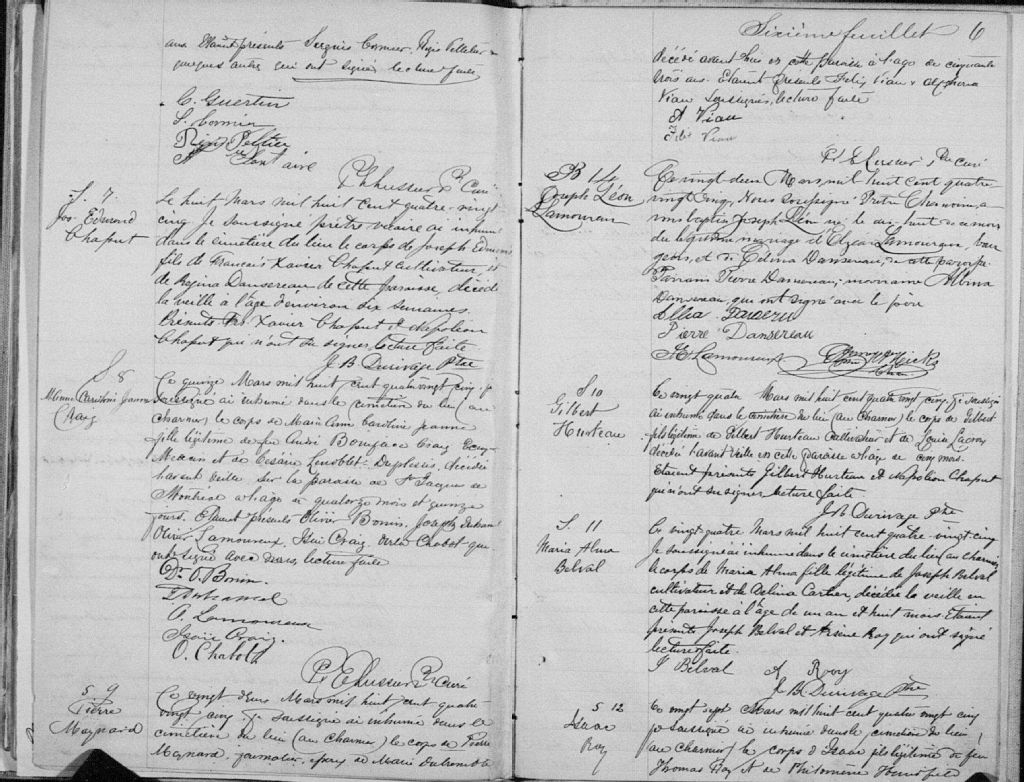 aux Etaient présents Sergius Cormier Régis Pelletier
quelques autres qui ont signé lecture faite
C. Guertin
S. Cormier
Régis Peltier
Fontaire
Ptre Curé
S. 7.
Jos. Edmond
Chaput
Le huit Mars mil huit cent quatre-vingt
cinq je soussigné prêtre vicaire ai inhumé
dans le cimetière du lieu le corps de Joseph Edmond
fils de François Xavier Chaput cultivateur, et
de Régina Dansereau de cette paroisse, décédé
la veille à l'âge d'environ dix semaines.
Présents Frs Xavier Chaput et Napoléon
Chaput qui n'ont su signer lecture faite
J. B. Durivage Ptre
S 8
Caroline Jeanne
Craig
Ce quinze Mars mil huit cent quatre vingt cinq je
soussigné ai inhumé dans le cimetière du lieu (au
Charnier) le corps de Marie Anne Caroline Jeanne
fille légitime de feu André Boniface Craig Ecuyer
Médecin et de Césaire Duplessis, décédée
avant veille sur la paroisse de St Jacques de
Montréal à l'âge de quatorze mois et quinze
jours. Etaient présents Olivier Bonin, Joseph Duhamel
Olivier Lamoureux, Craig Chabot qui
ont signé avec nous lecture faite
Dr. O. Bonin.
Duhamel
O. Lamoureux
Craig
O. Chabot
Ptre Curé
S. 9
Pierre
Maynard
Ce vingt deux Mars mil huit cent quatre
vingt cinq je soussigné ai inhumé dans le
cimetière du lieu (au Charnier) le corps de Pierre
Maynard journalier, époux de Marie
Sixième feuillet 6
décédé avant hier en cette paroisse à l'âge de cinquante
trois ans. Etaient présents Félix Viau & Alphonse
Viau soussignés, lecture faite
A Viau
Félix Viau
Ptre Curé
B 14
Joseph Léon
Lamoureux
Ce vingt deux Mars mil huit cent quatre
vingt cinq, Nous soussigné Prêtre Chanoine, a
vons baptisé Joseph Léon né le
du légitime mariage d'Elzéar Lamoureux, bour
geois, et de Célina Dansereau, de cette paroisse.
Parrain Pierre Dansereau, marraine Albina
Dansereau qui ont signé avec le père
Pierre Dansereau
Lamoureux
S 10
Gilbert
Hurteau
Ce vingt quatre Mars mil huit cent quatre vingt cinq. Je soussigné
ai inhumé dans le cimetière du lieu (au Charnier) le corps de Gilbert
fils légitime de Gilbert Hurteau Cultivateur et de Louisa Lacroix
décédé l'avant veille en cette paroisse à l'âge de cinq mois.
Etaient présents Gilbert Hurteau et Napoléon Chaput
qui n'ont su signer lecture faite
J. B. Durivage Ptre
S. 11
Maria Alma
Belval
Ce vingt-quatre Mars mil huit cent quatre-vingt cinq
Je soussigné ai inhumé dans le cimetière du lieu au charnier
le corps de Maria Alma fille légitime de Joseph Belval
cultivateur et de Aslina Cartier, décédée la veille en
cette paroisse à l'âge de un an et huit mois. Etaient
présents Joseph Belval et Arsène Roy qui ont signé
lecture faite.
J Belval A Rooy
J. B. Durivage Ptre
S 12
Isaac
Roy
Ce vingt sept Mars mil huit cent quatre vingt cinq
je soussigné ai inhumé dans le cimetière du lieu
(au charnier) le corps d'Isaac fils légitime de feu
Thomas Roy et de Philomène